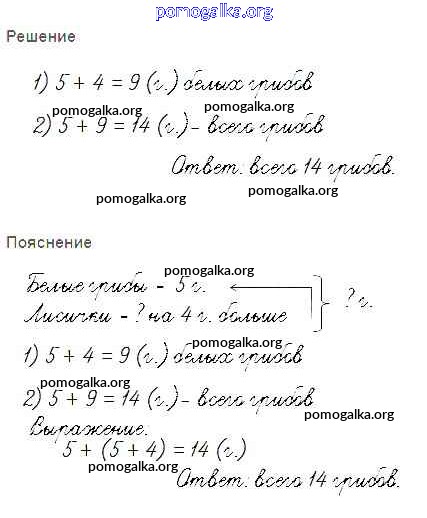 pomogalka.org
Решение
1) 5 + 4 = 9 (г.) белых грибов
pomogalka.org pomogalka.org
2) 5 + 9 = 14 (г.) - всего грибов
Ответ: всего 14 грибов.
pomogalka.org pomogalka.org
Пояснение
pomogalka.org
Белые грибы - 5 г.
Лисички - ? на 4 г. больше } ? г.
pomogalka.org
1) 5 + 4 = 9 (г.) белых грибов
pomogalka.org
2) 5 + 9 = 14 (г.) - всего грибов
pomogalka.org
Выражение:
5 + (5 + 4) = 14 (г.)
pomogalka.org
Ответ: всего 14 грибов.